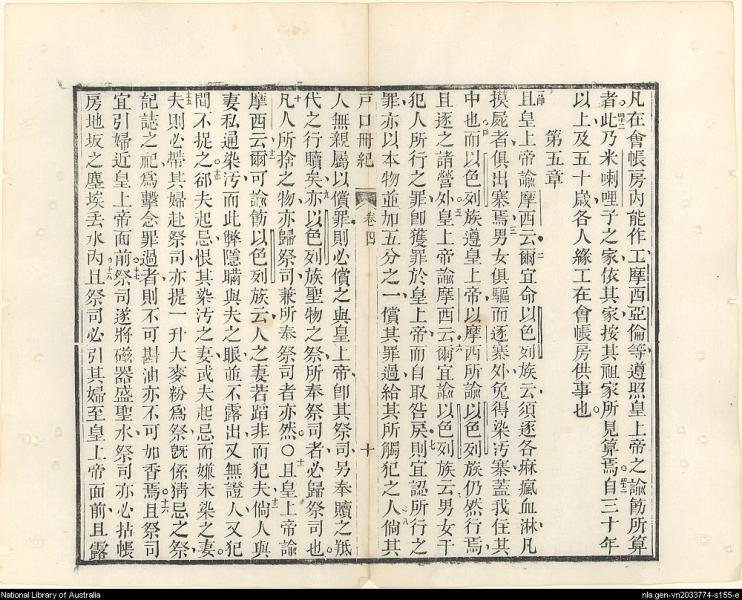 凡在會帳房內能作工摩西亞倫等遵照皇上帝之諭飭所算
者。此乃米喇哩子之家依其家按其祖家所見算焉。自三十年
以上及五十歲各人緣工在會帳房供事也。
第五章
且皇上帝諭摩西云爾宜命以色列族云須逐各痳瘋血淋凡
摸屍者俱出寨焉男女俱驅而逐寨外免得染污寨蓋我住其
中也而以色列族遵皇上帝以摩西所諭以色列族仍然行焉
且逐之諸營外皇上帝諭摩西云爾宜諭以色列族云男女干
犯人所行之罪卽獲罪於皇上帝而自取咎戾則宜認所行之
罪亦以本物並加五分之一償其罪過給其所觸犯之人倘其
戶口冊紀 卷四 十
人無親屬以償罪則必償之與皇上帝卽其祭司另奉贖之羝
代之行贖矣亦以色列族聖物之祭所奉祭司者必歸祭司也
凡人所捨之物亦歸祭司兼所奉祭司者亦然○且皇上帝諭
摩西云爾可諭飭以色列族云人之妻若蹈非而犯夫倘人與
妻私通染污而此弊隱瞞與夫之眼並不露出又無證人又犯
間不捉之郤夫起忌恨其染污之妻或夫起忌而嫌未染之妻。
夫則必帶其婦赴祭司亦提一升大麥粉爲祭旣係猜忌之祭
記誌之祀爲擊念罪過者則不可斟油亦不可加香焉且祭司
宜引婦近皇上帝面前祭司遂將磁器盛聖水祭司亦必拈帳
房地坂之塵埃丟水內且祭司必引其婦至皇上帝面前且露
National Library of Australia
nla.gen-vn2033774-s155-e